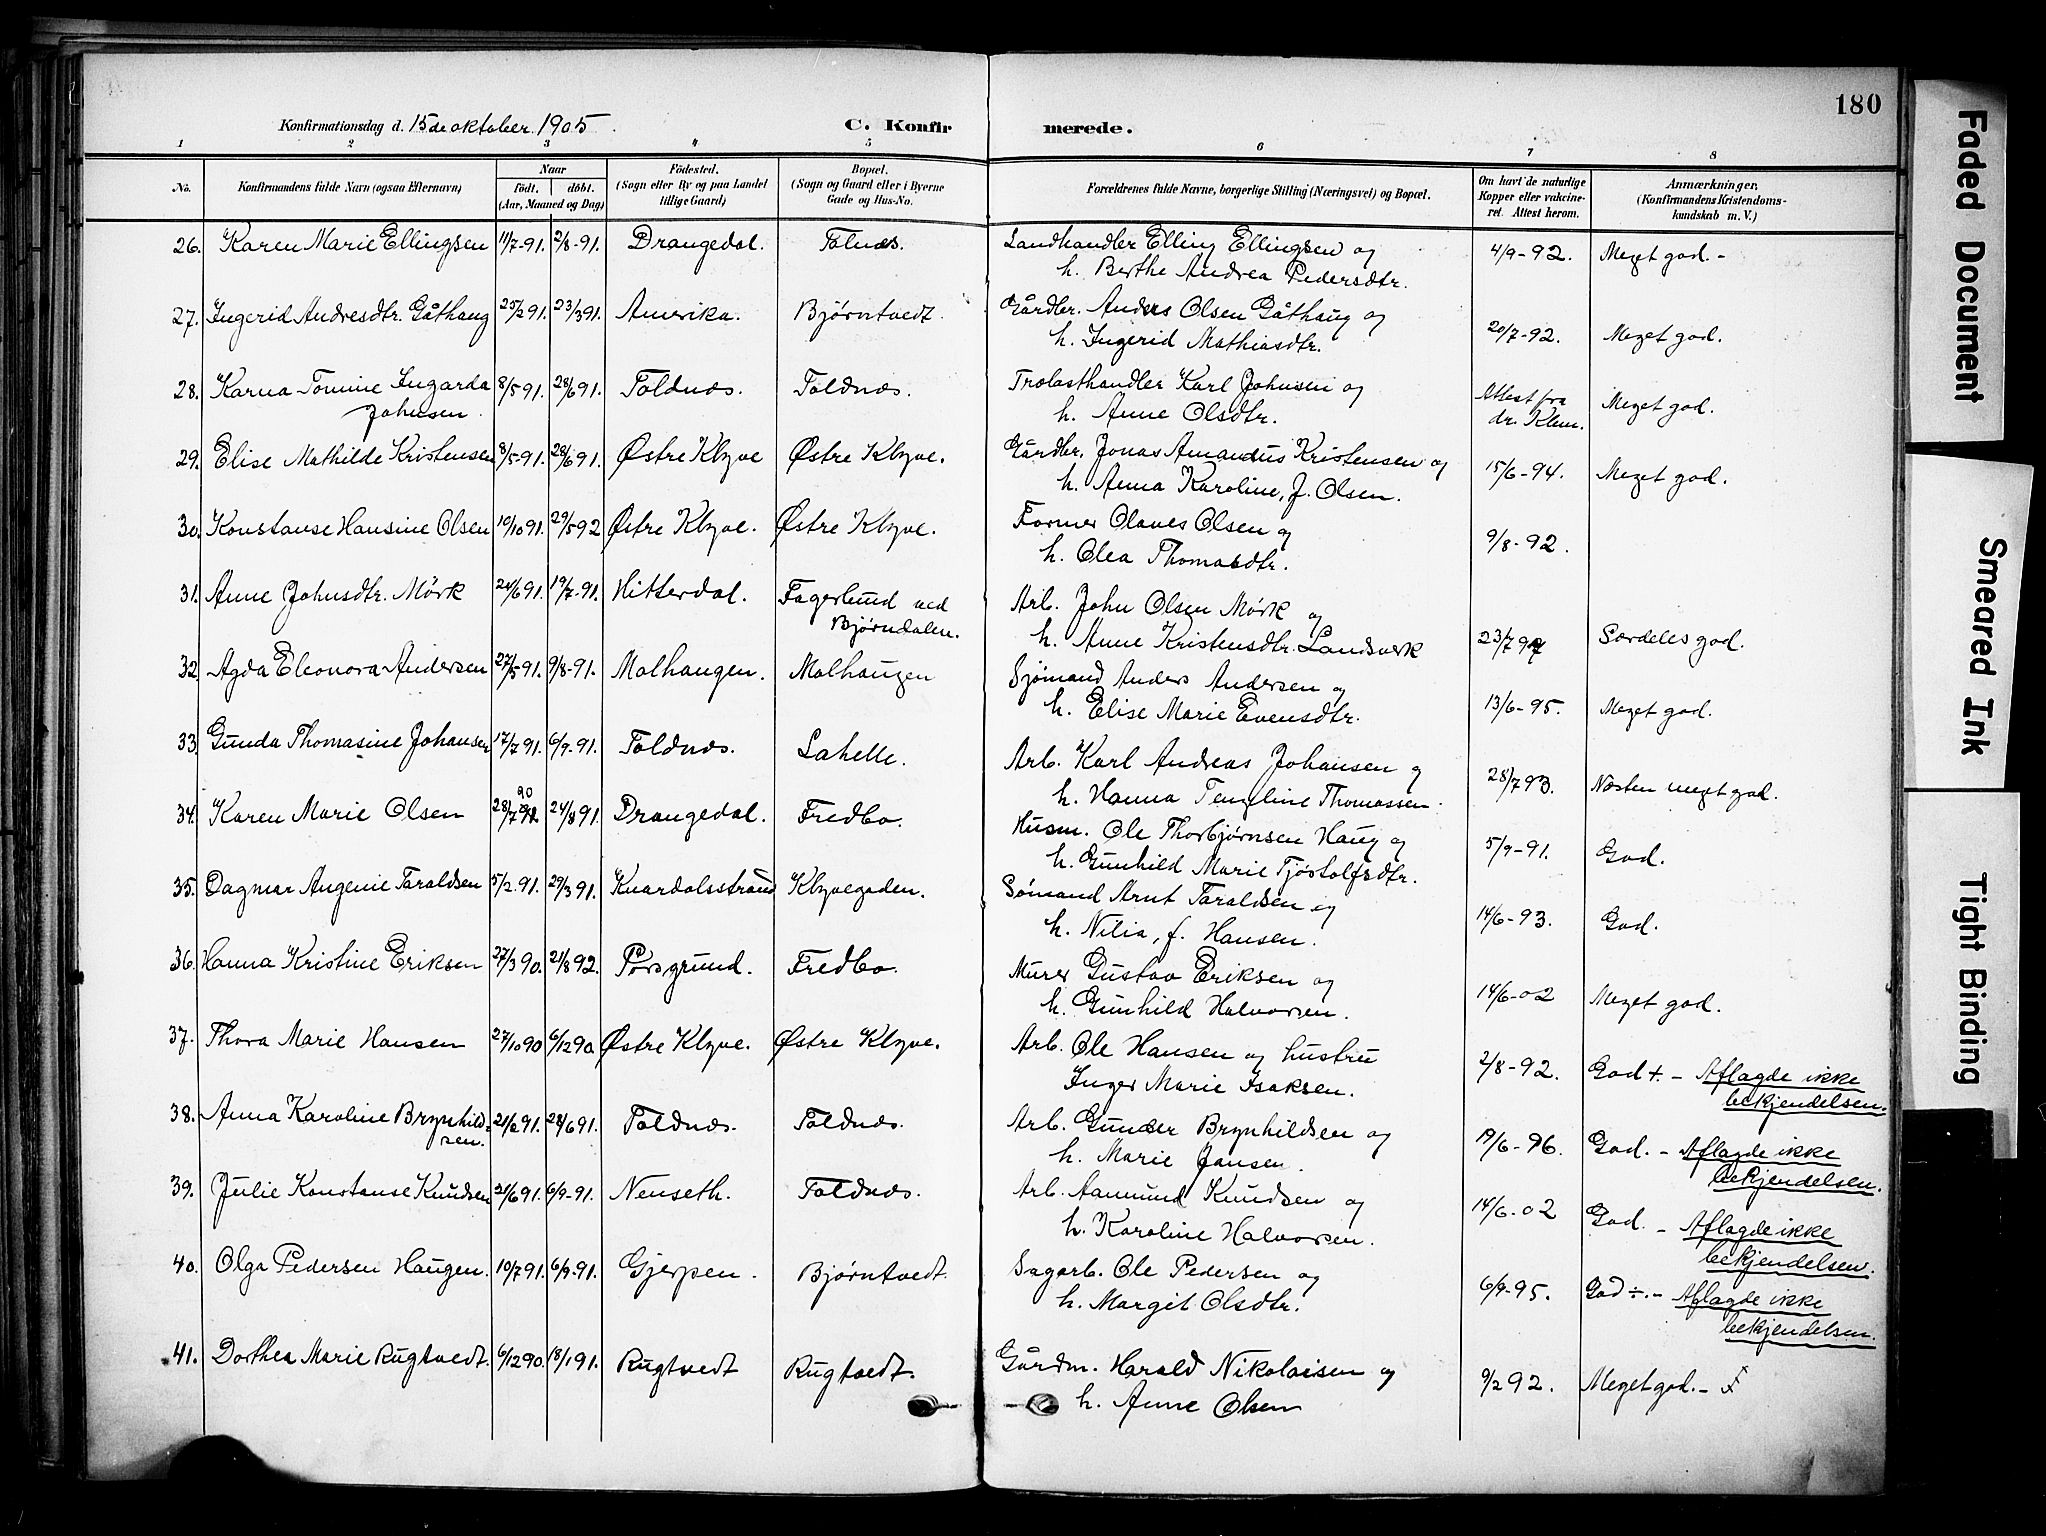 180
Konfirmationsdag d. 15de oktober 1905
C. Konfirmerede.
1 2 3 4 5 6 7 8
No. Konfirmandens fulde Navn (ogsaa Efternavn) Naar født. døbt. (Aar, Maaned og Dag) Fødested. (Sogn eller By og paa Landet tillige Gaard) Bopæl. (Sogn og Gaard eller i Byerne Gade og Hus-No. Forældrenes fulde Navne, borgerlige Stilling (Næringsvei) og Bopæl. Om havt de naturlige Kopper eller vakcineret. Attest herom. Anmærkninger. (Konfirmandens Kristendomskundskab m. V.)
26. Karen Marie Ellingsen 11/7-91. 2/8-91. Drangedal. Tolnæs. Landhandler Elling Ellingsen og
h. Berthe Andrea Pedersdtr. 4/9-92. Meget god. -
27. Ingerid Andresdtr. Gåthaug 25/2 91. 23/3 91. Amerika. Bjørntvedt. Gårdbr. Anders Olsen Gåthaug og
h. Ingerid Mathiasdtr. 20/7-92. Meget god.
28. Karna Tomine Ingarda 8/5 91. 28/6 91. Toldnæs. Toldnæs. Trælasthandler Karl Johnsen og Attest fra
Johnsen. h. Anne Olsdtr. dr. Klem. Meget god.
29. Elise Mathilde Kristensen 8/5-91. 28/6 91. Østre Klyve Østre Klyve. Gårdbr. Jonas Amandus Kristensen og
h. Anna Karoline, f. Olsen. 15/6-94. Meget god.
30. Konstanse Hansine Olsen 10/10 91. 29/5 92 Østre Klyve. Østre Klyve. Former Olaves Olsen og
h. Olea Thomasdtr. 9/8-92.
31. Anne Johnsdtr. Mörk 24/6 91. 19/7-91. Hitterdal. Fagerlund ved Arb. John Olsen Mörk og
Bjørndalen. h. Anne Kristensdtr. Landsverk 23/7 97 Særdeles god.
32. Agda Eleonora Andersen 27/5 91. 9/8-91. Malhaugen. Malhaugen Sjömand Anders Andersen og
h. Elise Marie Evensdtr. 13/6-95. Meget god.
33 Gunda Thomasine Johansen 17/7 91. 6/9-91. Toldnæs. Lahelle. Arb. Karl Andreas Johansen og
h. Hanna Tengeline Thomassen. 28/7 93. Næsten meget god.
34. Karen Marie Olsen 28/7 90 24/8 91. Drangedal. Fredbo. Husm. Ole Thorbjørnsen Haug og
h. Gunhild Marie Tjöstolfsdtr. 5/9-91. God.
35. Dagmar Angenie Taraldsen 5/2.91. 29/3 91. Knardalsstrand Klyvegaden. Sömand Arnt Taraldsen og
h. Nilia, f. Hansen. 14/6-93. God.
36. Hanna Kristine Eriksen 27/3 90. 21/8 92. Porsgrund. Fredbo. Murer Gustav Eriksen og
h. Gunhild Halvorsen. 14/6-02 Meget god.
37. Thora Marie Hansen 27/10 90 6/12 90. Østre Klyve. Østre Klyve. Arb. Ole Hansen og hustru
Inger Marie Isaksen. 2/8-92. God +. - Aflagde ikke
bekjendelsen.
38. Anna Karoline Brynhild- 21/2 91. 28/6 91. Toldnæs. Toldnæs. Arb. Gunder Brynhildsen og
sen. h. Marie Jansen. 19/6-96. God. - Aflagde ikke
bekjendelsen.
39. Julie Konstanse Knudsen 21/6 91. 6/9-91. Nenseth. Toldnæs. Arb. Aamund Knudsen og
h. Karoline Halvorsen. 14/6-02 God. - Aflagde ikke
bekjendelsen.
40. Olga Pedersen Haugen. 10/7 91. 6/9-91. Gjerpen. Bjørntvedt. Sagarb. Ole Pedersen og
h. Margit Olsdtr. 6/9-95. God ÷. - Aflagde ikke
bekjendelsen.
41. Dorthea Marie Rugtvedt. 6/12 90. 18/1 91. Rugtvedt Rugtvedt. Gårdm. Harald Nikolaisen og
h. Anne Olsen 9/2 92. Meget god. -
Faded Document
Smeared Ink
Tight Binding